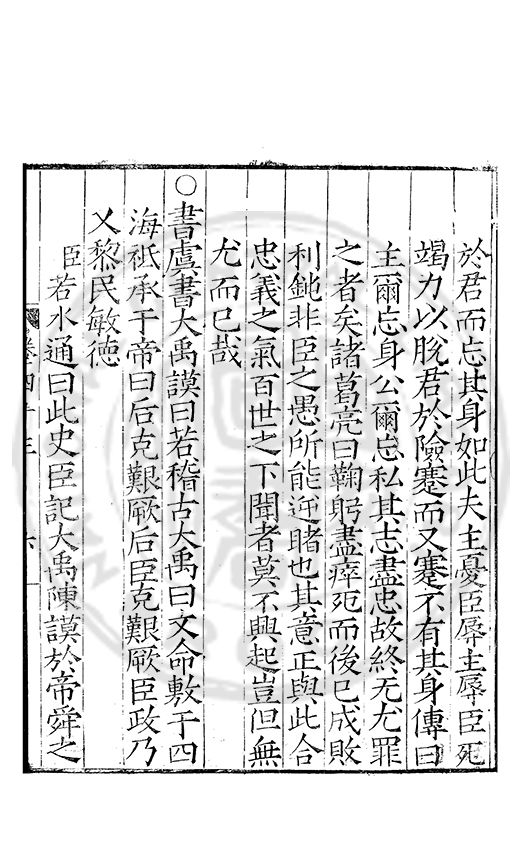 於君而忘其身如此夫主憂臣辱主辱臣死
竭力以脫君於險蹇而又蹇不有其身傳曰
主爾忘身公爾忘私其志盡忠故終无尤罪
之者矣諸葛亮曰鞠躬盡瘁死而後已成敗
利鈍非臣之愚所能逆睹也其意正與此合
忠義之氣百世之下聞者莫不興起豈但無
尤而已哉
○書虞書大禹謨曰若稽古大禹曰文命敷于四
海祗承于帝曰后克艱厥后臣克艱厥臣政乃
乂黎民敏德
臣若水通曰此史臣記大禹陳謨於帝舜之
卷四十三 六